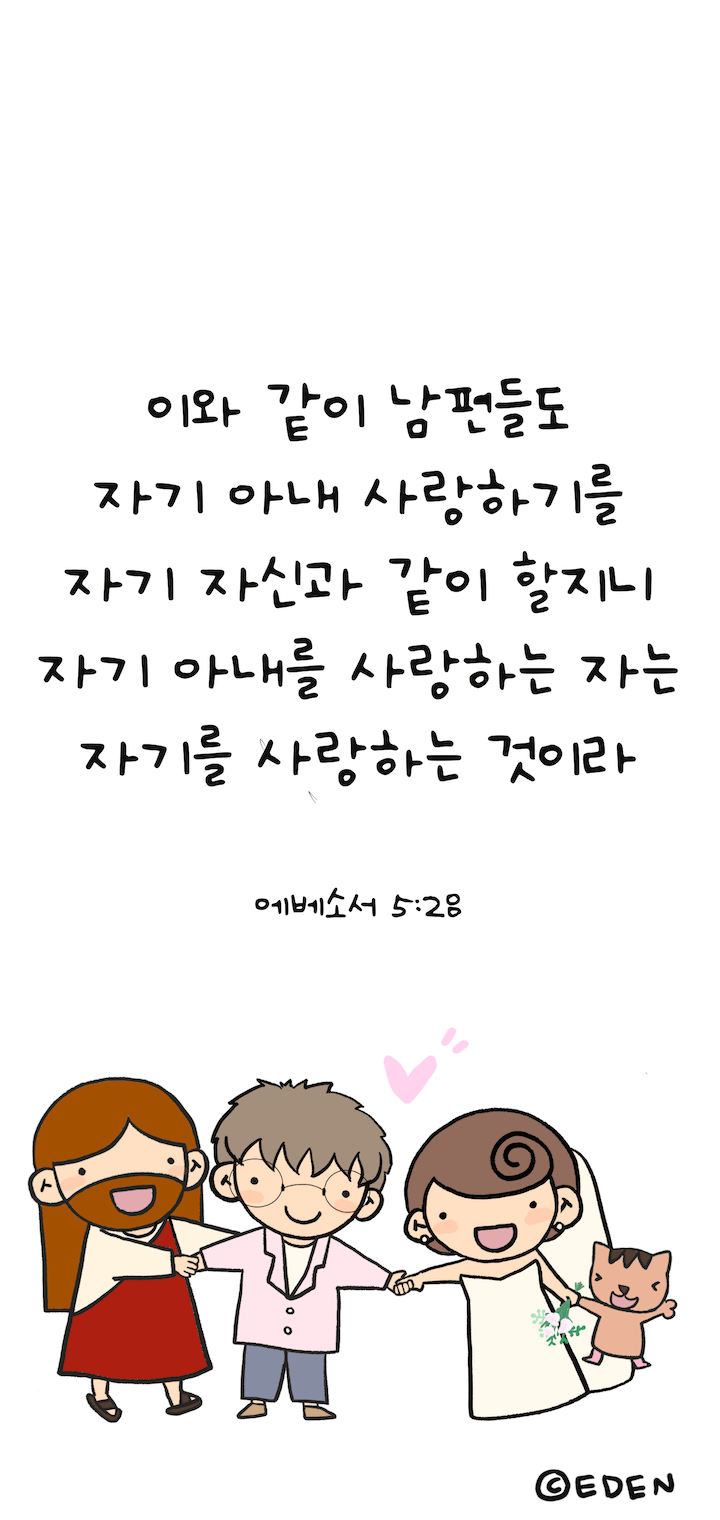 이와 같이 남편들도
자기 아내 사랑하기를
자기 자신과 같이 할지니
자기 아내를 사랑하는 자는
자기를 사랑하는 것이라
에베소서 5:28
©EDEN